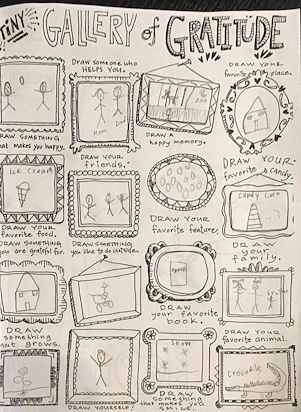 TINY GALLERY of GRATITUDE
DRAW SOMETHING
that makes you happy.
Draw someone who
HELPS YOU.
mom
DRAW A
happy memory.
the
zoo
DRAW your
favorite place.
ice cream
DRAW YOUR
favorite food.
DRAW YOUR
friends.
DRAW YOUR
favorite feature.
DRAW YOUR
favorite CANDY.
Candy Corn
DRAW SOMETHING
you are grateful for.
DRAW SOMETHING
you like to do outside.
DRAW
your favorite
book.
DRAW
your
family.
dad
DRAW
something
that grows.
DRAW YOURSELF!
DRAW
something
that makes you
SMILE.
Show
DRAW your
favorite animal.
Crocodile